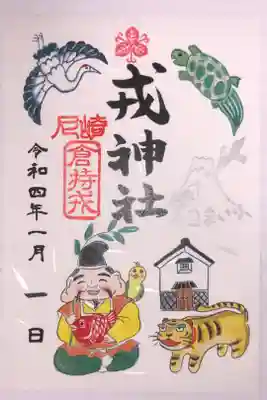 戎神社
尼崎
倉持戎
令和四年一月一日